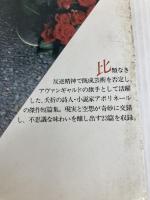 比類なき
反逆精神で既成芸術を否定し
アヴァンギャルドの旗手として活躍
した、夭折の詩人・小説家アポリネール
の傑作短篇集。現実と空想が奇妙に交錯
し、不思議な味わいを醸し出す23篇を収録。